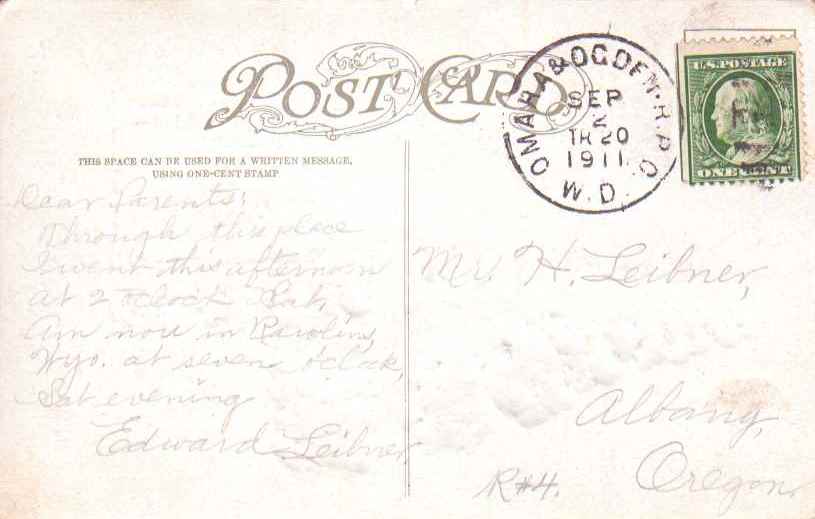 POST CARD
THIS SPACE CAN BE USED FOR A WRITTEN MESSAGE,
USING ONE-CENT STAMP
OMAHA & OGDEN. R.P.O.
SEP
2
TR 20
1911
W.D.
U.S. POSTAGE
ONE CENT
Dear Parents:
Through this place
I went this afternoon
at 2 o'clock Sat.
Am now in Rawlins,
Wyo. at seven o'clock,
Sat evening
Edward Leibner
Mr. H. Leibner,
Albany,
R#4. Oregon.